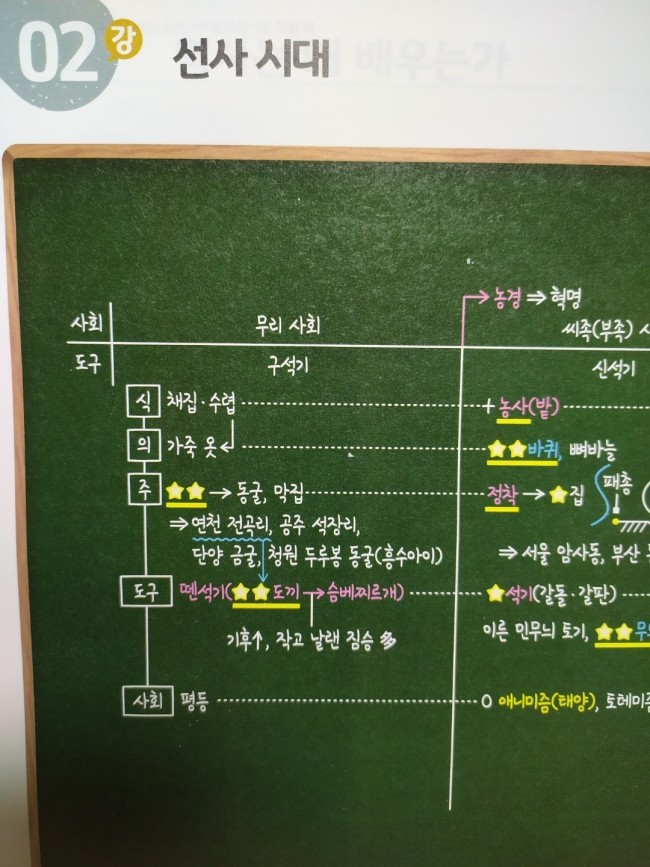 02강 선사 시대
농경 ⇒ 혁명
사회 무리 사회 씨족(부족)
도구 구석기 신석기
식 채집·수렵 + 농사(밭)
의 가죽 옷 ★★바퀴, 뼈바늘
주 ★★ → 동굴, 막집 정착 → ★집 패총
⇒ 연천 전곡리, 공주 석장리,
단양 금굴, 청원 두루봉 동굴(흥수아이) ⇒ 서울 암사동, 부산
도구 뗀석기(★★도끼 → 슴베찌르개) ★석기(갈돌·갈판)
기후↑, 작고 날랜 짐승 多 이른 민무늬 토기, ★★
사회 평등 O 애니미즘(태양), 토테미즘